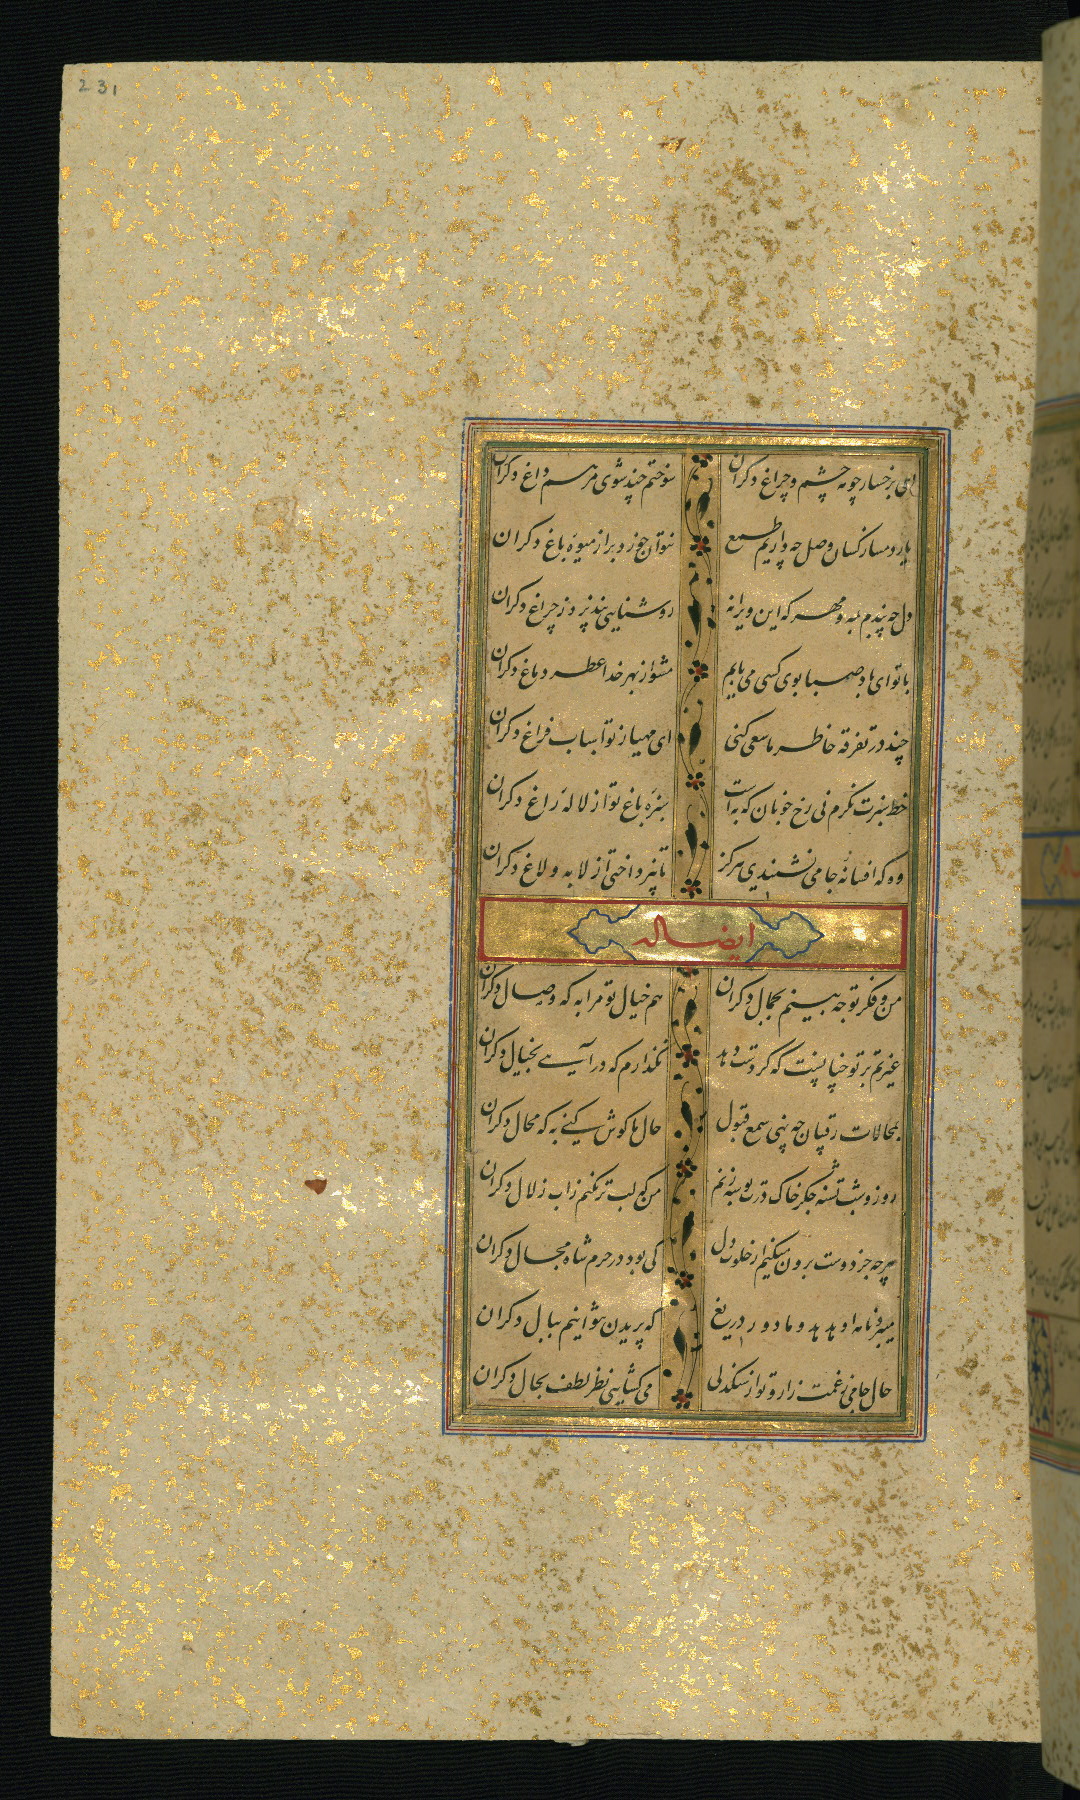 231
ای برخسار چو مه چشم و چراغ دکران
سوختم چند شوی مرهم داغ دکران
یار دمساز کسان وصل چه داریم طمع
نتوان خورد بر از میوهٔ باغ دکران
دل چه بندم بمه و مهر که این ویرانه
روشنایی نپذیرد ز چراغ دکران
با تو ای باد صبا بوی کسی می یابم
مشو از بهر خدا عطر دماغ دکران
چند در تفرقه خاطر ما سعی کنی
ای مهیا ز تو اسباب فراغ دکران
خط سبزت نکرم نی رخ خوبان که به است
سبزهٔ باغ تو از لاله راغ دکران
وه که افسانه جامی نشنیدی هرکز
تا نپرداختی از لابه و لاغ دکران
ایضاله
من و فکر تو چه بینم بجمال دکران
هم خیال تو مرا به که وصال دکران
غیرتم بر تو چنانست که کر دست دهد
نکذارم که درآیی بخیال دکران
بمحالات رقیبان چه نهی سمع قبول
حال ما کوش کنی به که محال دکران
روز و شب تشنه جکر خاک درت بوسه زنم
من که لب تر نکنم زاب زلال دکران
هرچه جز دوست برون میکنم از خلوت دل
کی بود در حرم شاه مجال دکران
میبرد نامه او هدهد و ما دور دریغ
که پریدن نتوانیم ببال دکران
حال جامی ز غمت زار و تو از سنکدلی
می کشایی نظر لطف بحال دکران